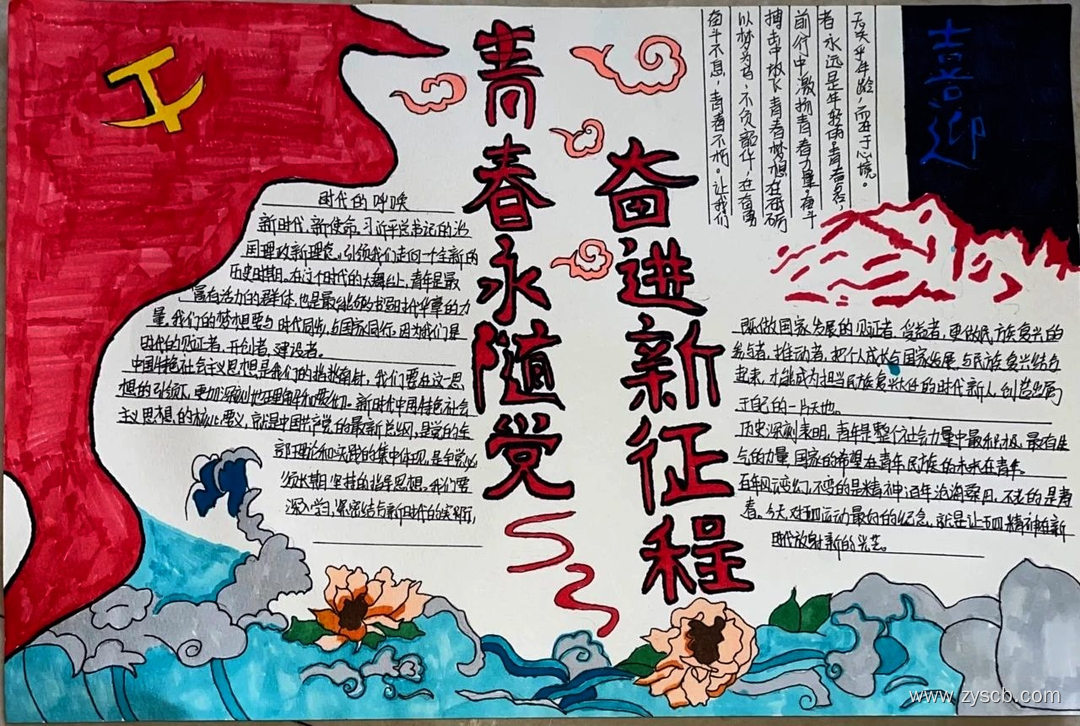 青春永随党
奋进新征程
喜迎
无关乎年龄,而在于心境。
者永远是年轻
前行中激扬青春力量,奋斗
搏击中放飞青春梦想在砥砺
以梦为马,不负韶华,在奋勇
奋斗不息,青春不朽。让我们
时代的呼唤
新时代,新使命。习近平总书记的治
国理政新理念,引领我们走向一个全新的
历史时期。在这个时代的大舞台上,青年是最
富有活力的群体,也是最能够书写时代华章的力
量。我们的梦想要与时代同步,与国家同行,因为我们是
时代的见证者,开创者,建设者。
中国特色社会主义思想是我们的指南针,我们要在这一思
想的引领下,更加深刻地理解和要们。新时代中国特色社会
主义思想的核心要义,就是中国共产党的最新总纲,是党的全
部理论和实践的集中体现,是全党必
须长期坚持的指导思想。我们要
深入学习,紧密结合新时代的实际,
既做国家发展的见证者、受益者,更做民族复兴的
参与者、推动者,把个人成长与国家发展、与民族复兴结合
起来,才能成为担当民族复兴大任的时代新人,创造出属
于自己的一片天地。
历史深刻表明,青年是整个社会力量中最积极、最有生
气的力量,国家的希望在青年,民族的未来在青年。
百年风云变幻,不变的是精神,百年沧海桑田,不老的是青
春。今天对五四运动最好的纪念,就是让五四精神在新
时代放射新的光芒。
www.zyscb.com